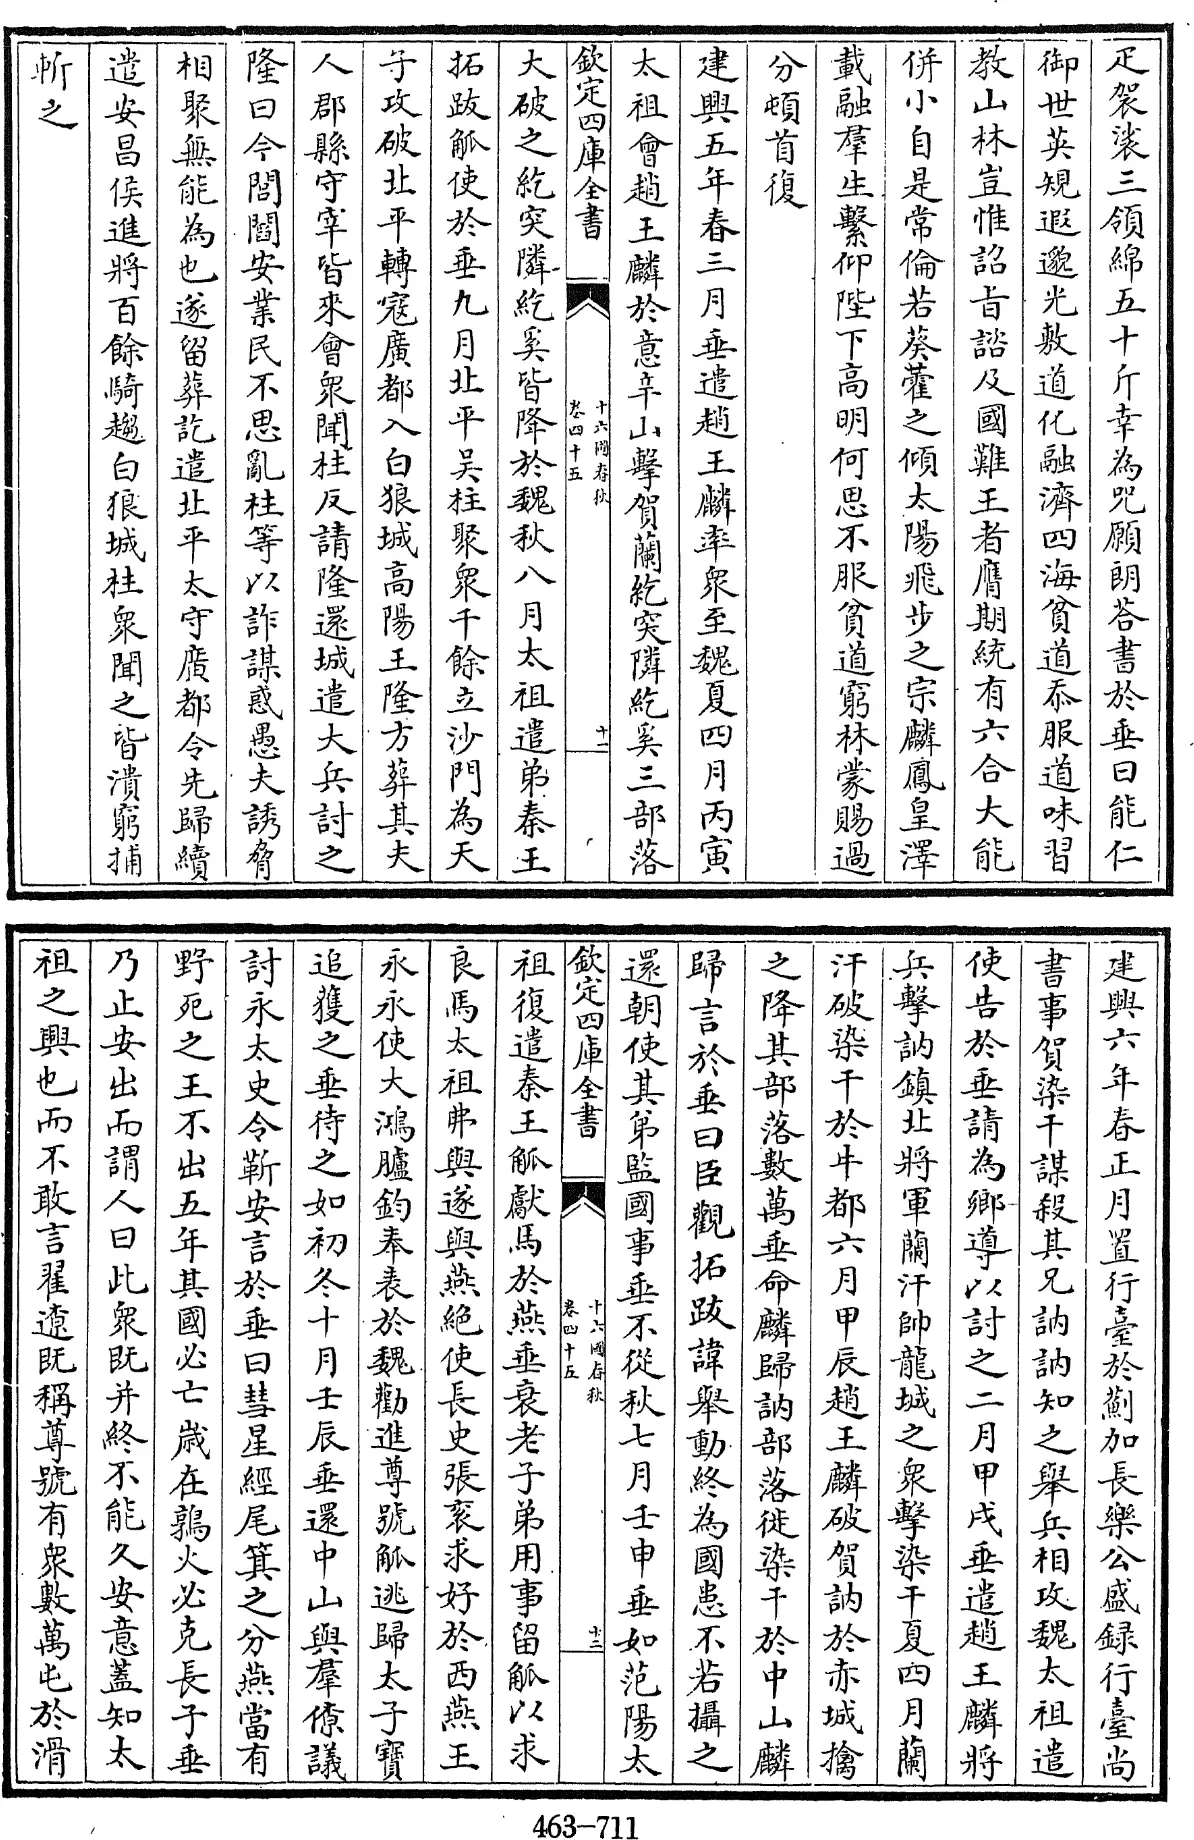 疋袈裟三領綿五十斤幸為呪願朗荅書於垂曰能仁
御世英規遐邈光敷道化融濟四海貧道忝服道味習
教山林豈惟詔旨諮及國難王者膺期統有六合大能
併小自是常倫若葵藿之傾太陽飛步之宗麟鳳皇澤
載融羣生繫仰陛下高明何思不服貧道窮林蒙賜過
分頓首復
建興五年春三月垂遣趙王麟率衆至魏夏四月丙寅
太祖會趙王麟於意辛山擊賀蘭紇突隣紇奚三部落
欽定四庫全書
十六國春秋
卷四十五
十一
大破之紇突隣紇奚皆降於魏秋八月太祖遣弟秦王
拓跋觚使於垂九月北平吳柱聚衆千餘立沙門為天
子攻破北平轉寇廣都入白狼城高陽王隆方葬其夫
人郡縣守宰皆來會衆聞柱反請隆還城遣大兵討之
隆曰今閭閻安業民不思亂柱等以詐謀惑愚夫誘脅
相聚無能為也遂留葬訖遣北平太守廣都令先歸續
遣安昌侯進將百餘騎趨白狼城柱衆聞之皆潰窮捕
斬之
建興六年春正月置行臺於薊加長樂公盛録行臺尚
書事賀染干謀殺其兄訥訥知之舉兵相攻魏太祖遣
使告於垂請為鄉導以討之二月甲戌垂遣趙王麟將
兵擊訥鎮北將軍蘭汗帥龍城之衆擊染干夏四月蘭
汗破染干於牛都六月甲辰趙王麟破賀訥於赤城擒
之降其部落數萬垂命麟歸訥部落徙染干於中山麟
歸言於垂曰臣觀拓跋諱舉動終為國患不若攝之
還朝使其弟監國事垂不從秋七月壬申垂如范陽太
欽定四庫全書
十六國春秋
卷四十五
十二
祖復遣秦王觚獻馬於燕垂衰老子弟用事留觚以求
良馬太祖弗與遂與燕絶使長史張衮求好於西燕王
永永使大鴻臚鈞奉表於魏勸進尊號觚逃歸太子寶
追獲之垂待之如初冬十月壬辰垂還中山與羣僚議
討永太史令靳安言於垂曰彗星經尾箕之分燕當有
野死之王不出五年其國必亡歲在鶉火必克長子垂
乃止安出而謂人曰此衆既并終不能久安意蓋知太
祖之興也而不敢言翟遼既稱尊號有衆數萬屯於滑
463-711